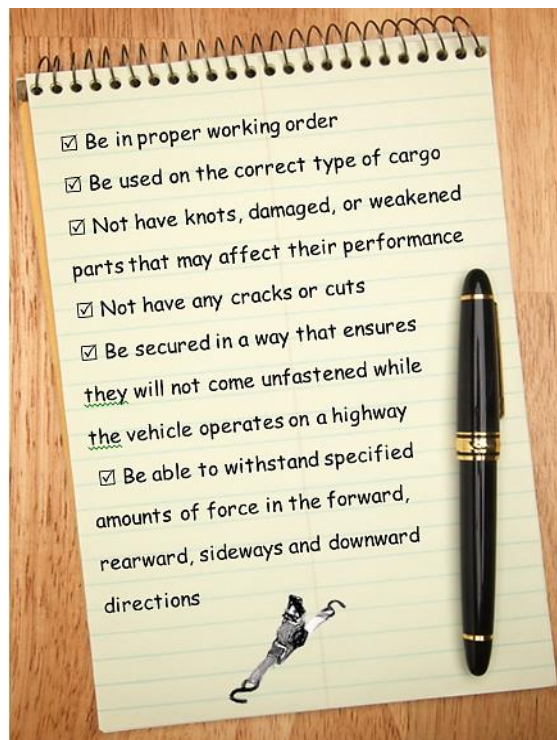 ☑ Be in proper working order
☑ Be used on the correct type of cargo
☑ Not have knots, damaged, or weakened
parts that may affect their performance
☑ Not have any cracks or cuts
☑ Be secured in a way that ensures
they will not come unfastened while
the vehicle operates on a highway
☑ Be able to withstand specified
amounts of force in the forward,
rearward, sideways and downward
directions